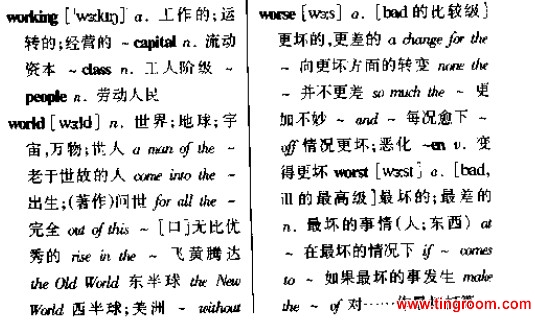 working ['wə:kɪŋ] a. 工作的;运
转的;经营的 ~ capital n. 流动
资本 ~ class n. 工人阶级 ~
people n. 劳动人民
world [wə:ld] n. 世界;地球;宇
宙,万物;世人 a man of the ~
老于世故的人 come into the ~
出生;(著作)问世 for all the ~
完全 out of this ~ [口]无比优
秀的 rise in the ~ 飞黄腾达
the Old World 东半球 the New
World 西半球;美洲 ~ without
worse [wə:s] a. [bad 的比较级]
更坏的,更差的 a change for the
~ 向更坏方面的转变 none the
~ 并不更差 so much the ~ 更
加不妙 ~ and ~ 每况愈下 ~
off 情况更坏;恶化 ~en v. 变
得更坏 worst [wə:st] a. [bad,
ill 的最高级]最坏的;最差的
n. 最坏的事情(人;东西) at
~ 在最坏的情况下 if ~ comes
to ~ 如果最坏的事发生 make
the ~ of 对……
www.tingroom.com